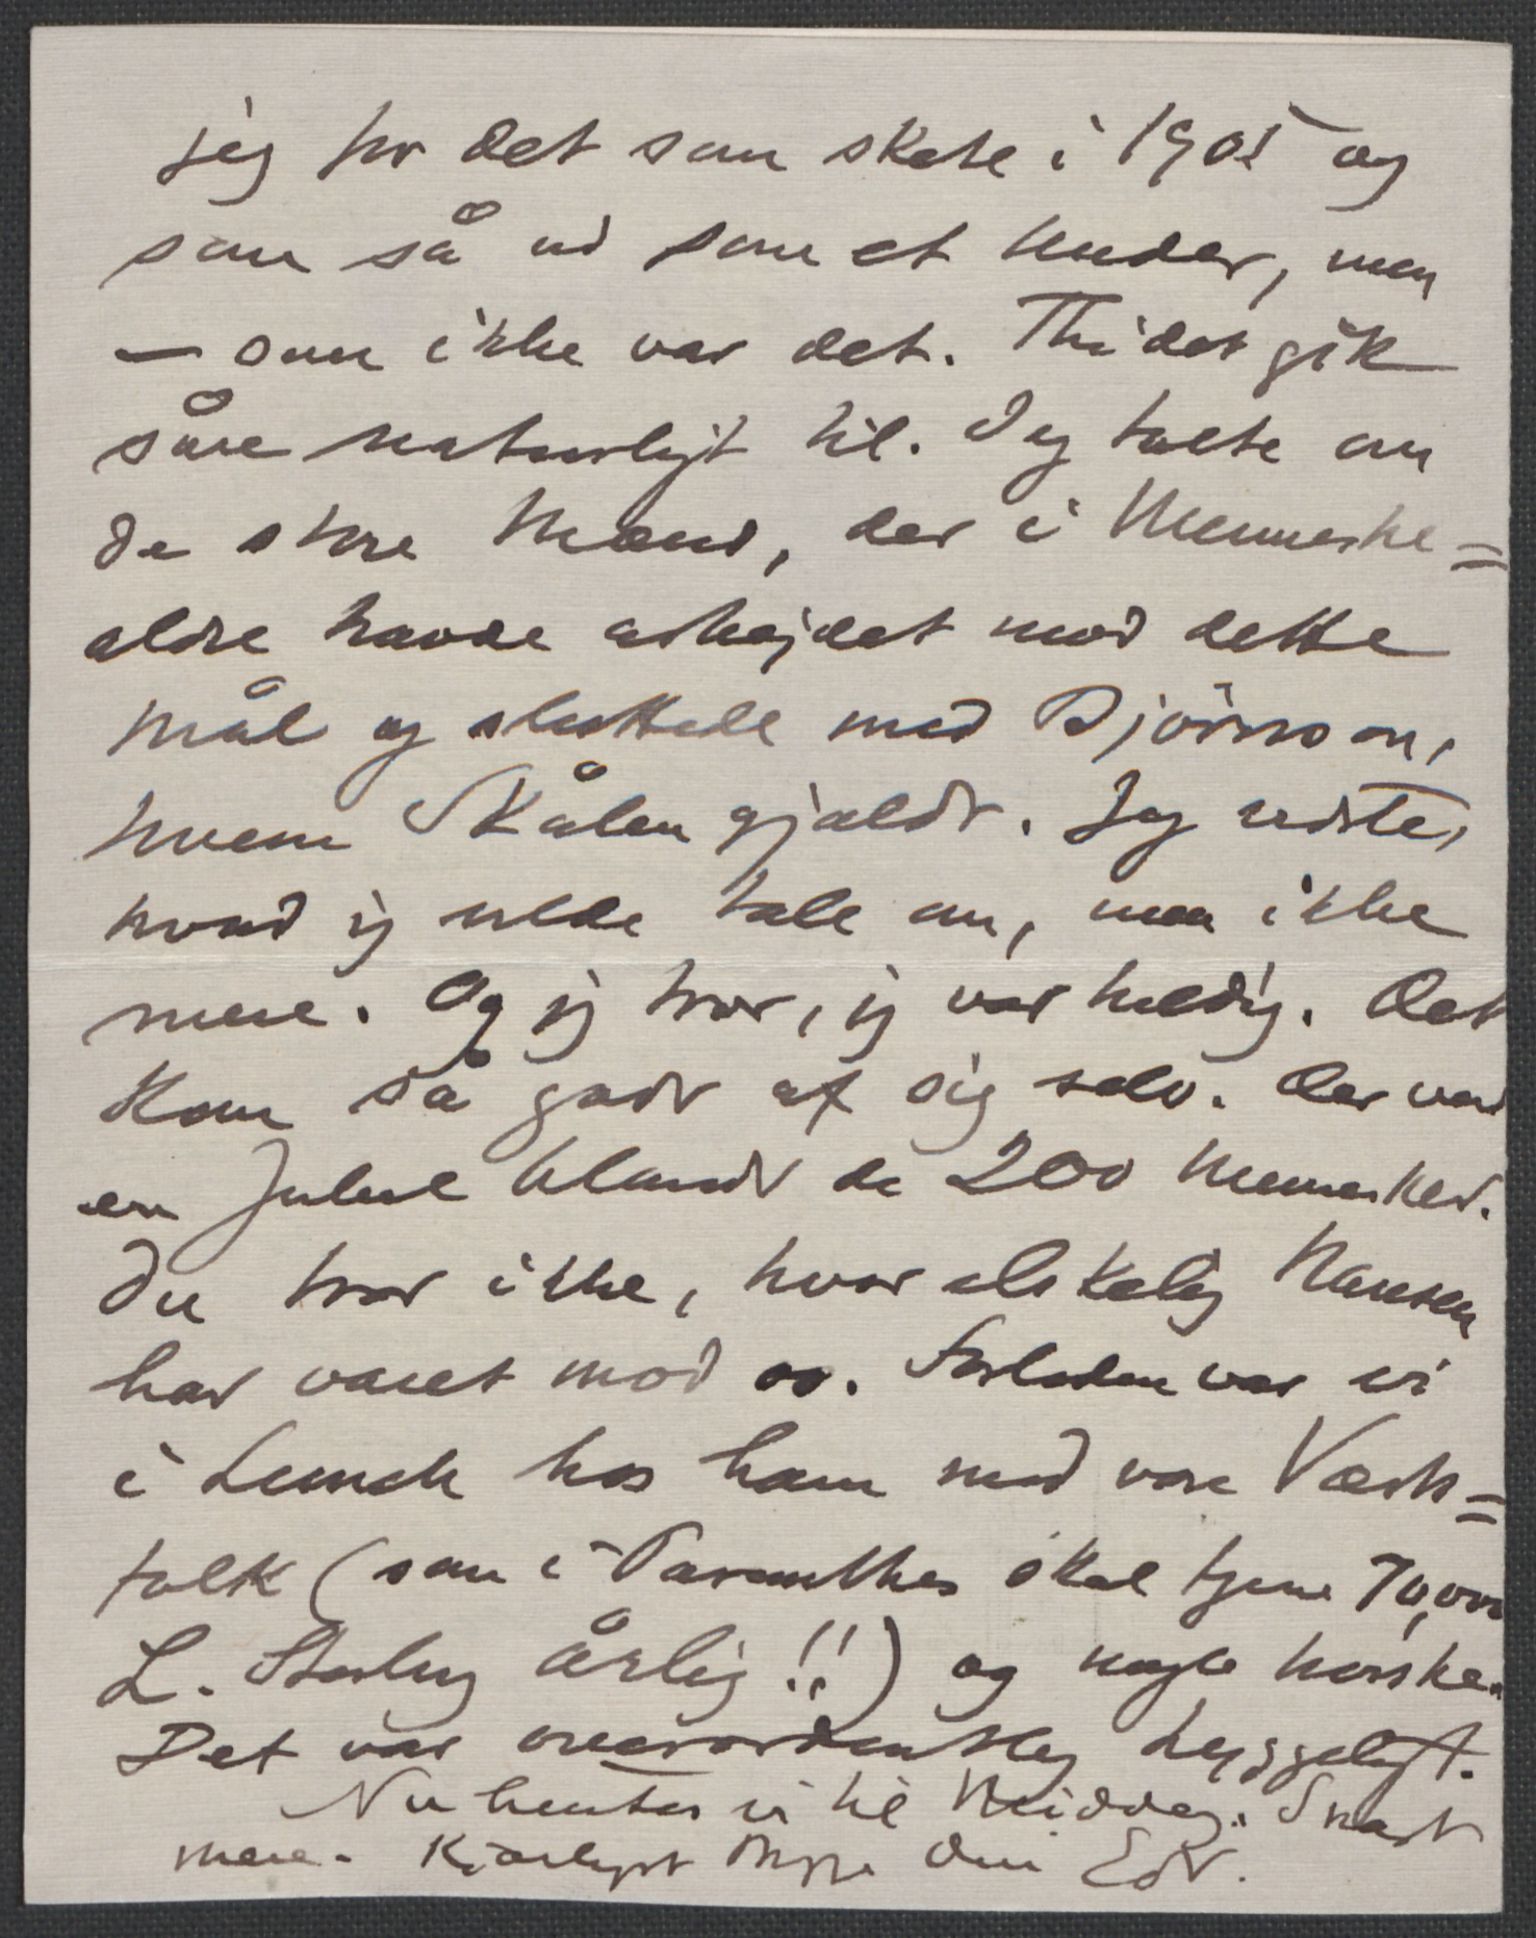 jeg for det som skete i 1905 og
som så ud som et Under, men
– som ikke var det. Thi det gik
såre naturligt til. Jeg talte om
de store Mænd, der i Menneske=
aldre havde arbejdet mod dette
Mål og sluttede med Bjørnson,
hvem Skålen gjaldt. Jeg vidste,
hvad jeg vilde tale om, men ikke
mere. Og jeg tror, jeg var heldig. Det
kom så godt af sig selv. Der var
en Jubel blandt de 200 Mennesker.
Du tror ikke, hvor elskelig Nansen
har været mod os. Forleden var vi
i Lunch hos ham med vore Værts=
folk (som i Parenthes skal tjene 70,000
L. Sterling årlig!!) og nogle norske.
Det var overordentlig hyggeligt.
Nu hentes vi til Middag. Snart
mere. Kjærligst Din Edv.